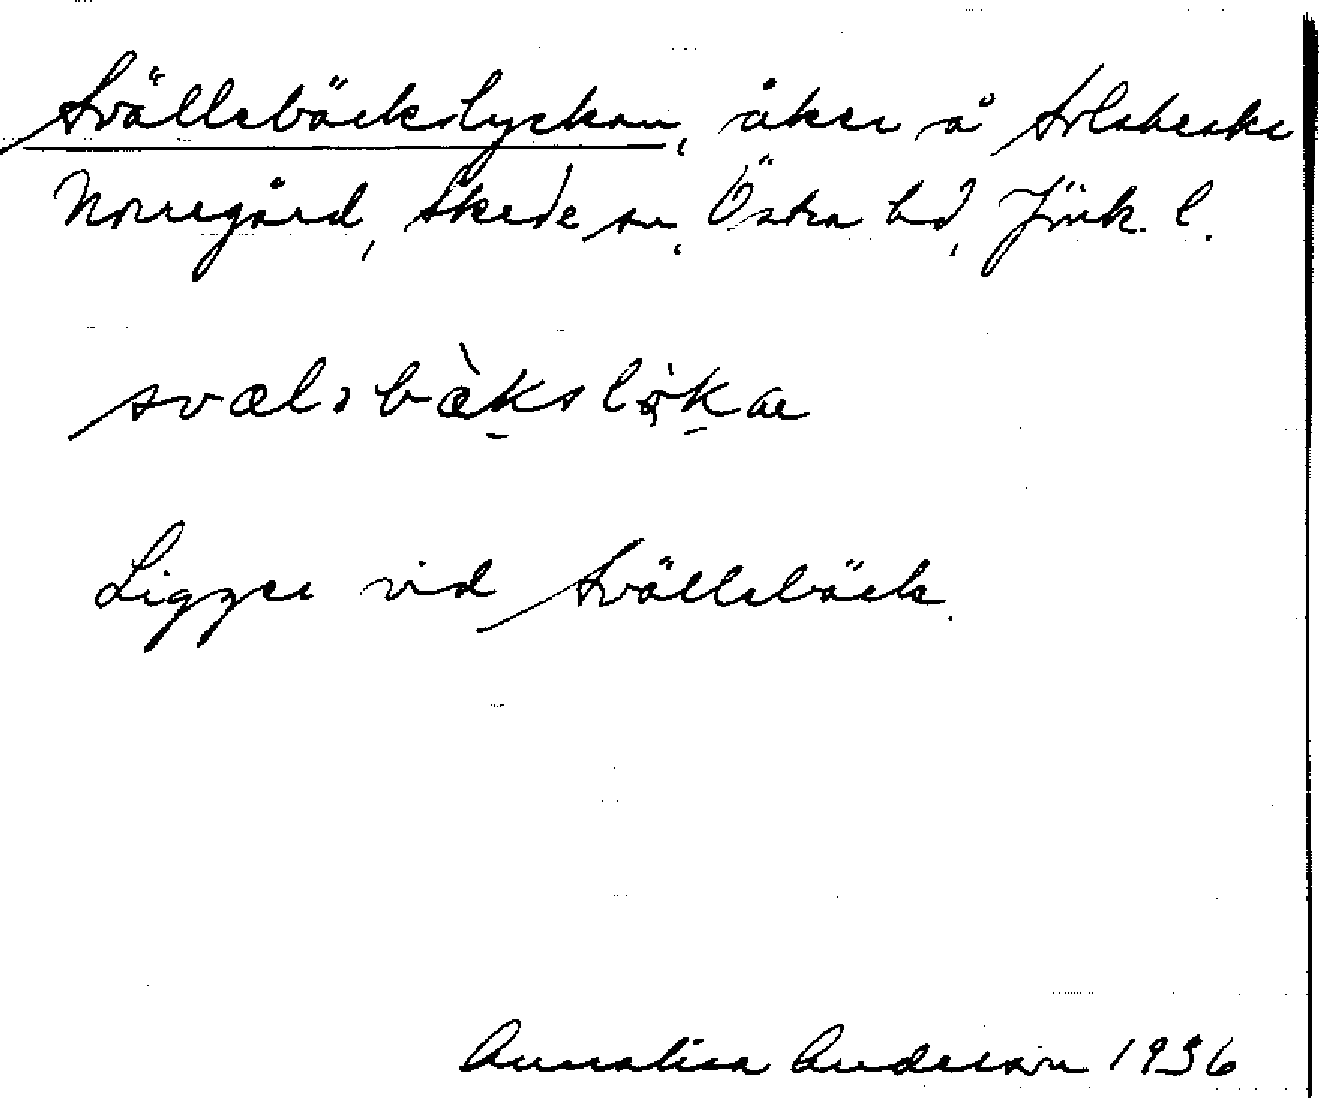 Svällebäckslyckan, åker å Solaberke
Norregård, Skede sn, Östra hd, Jönk. l.
Ligger vid Svällebäck.
Annalisa Anderson 1936